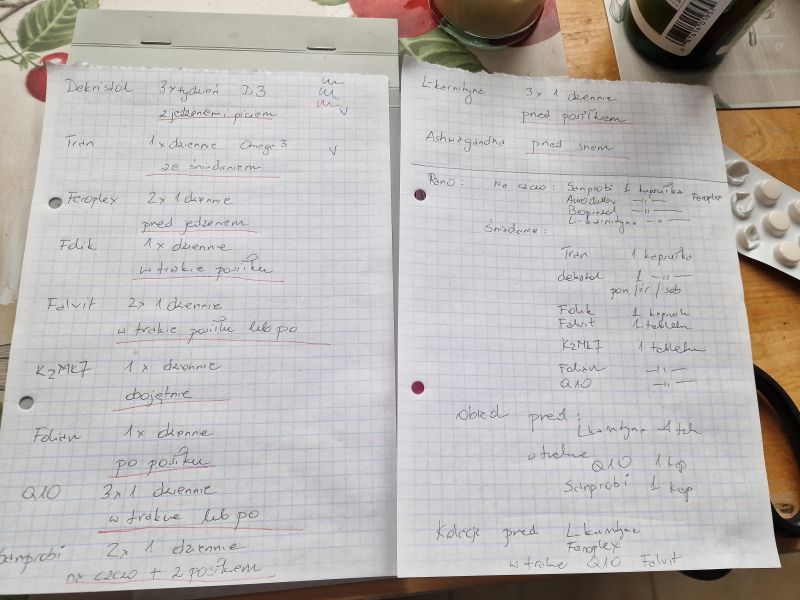 Dekristol 3x tydzień D3
z jedzeniem i piciem
Tran 1x dziennie Omega 3
ze śniadaniem
Feroplex 2x 1 dziennie
przed jedzeniem
Folik 1x dziennie
w trakcie posiłku
Falvit 2x 1 dziennie
w trakcie posiłku lub po
K2MK7 1x dziennie
obojętnie
Folian 1x dziennie
po posiłku
Q10 3x 1 dziennie
w trakcie lub po
Sanprobi 2x 1 dziennie
na czczo + z posiłkiem
L-karnityna 3x 1 dziennie
przed posiłkiem
Ashwagandha przed snem
Rano: Na czczo: Sanprobi 1 kapsułka Feroplex
-"-
-"-
L-karnityna -"-
Śniadanie:
Tran 1 kapsułka
dekristol 1 -"-
pon / śr / sob
Folik 1 kapsułk
Falvit 1 tabletka
K2MK7 1 tabletka
Folian -"-
Q10 -"-
Obiad przed:
L karnityna 1 tab
w trakcie
Q10 1 kap
Sanprobi 1 kap
Kolacja przed L karnityna
Feroplex
w trakcie Q10 Falvit